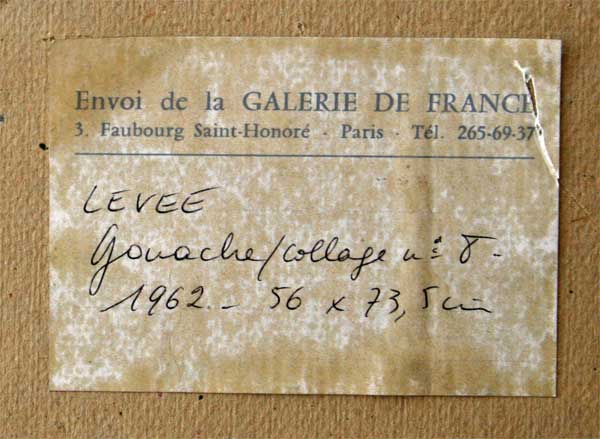 Envoi de la GALERIE DE FRANCE
3. Faubourg Saint-Honoré · Paris · Tél. 265-69-37
LEVEE
Gouache/collage n° 8-
1962 - 56 x 73,5 cm